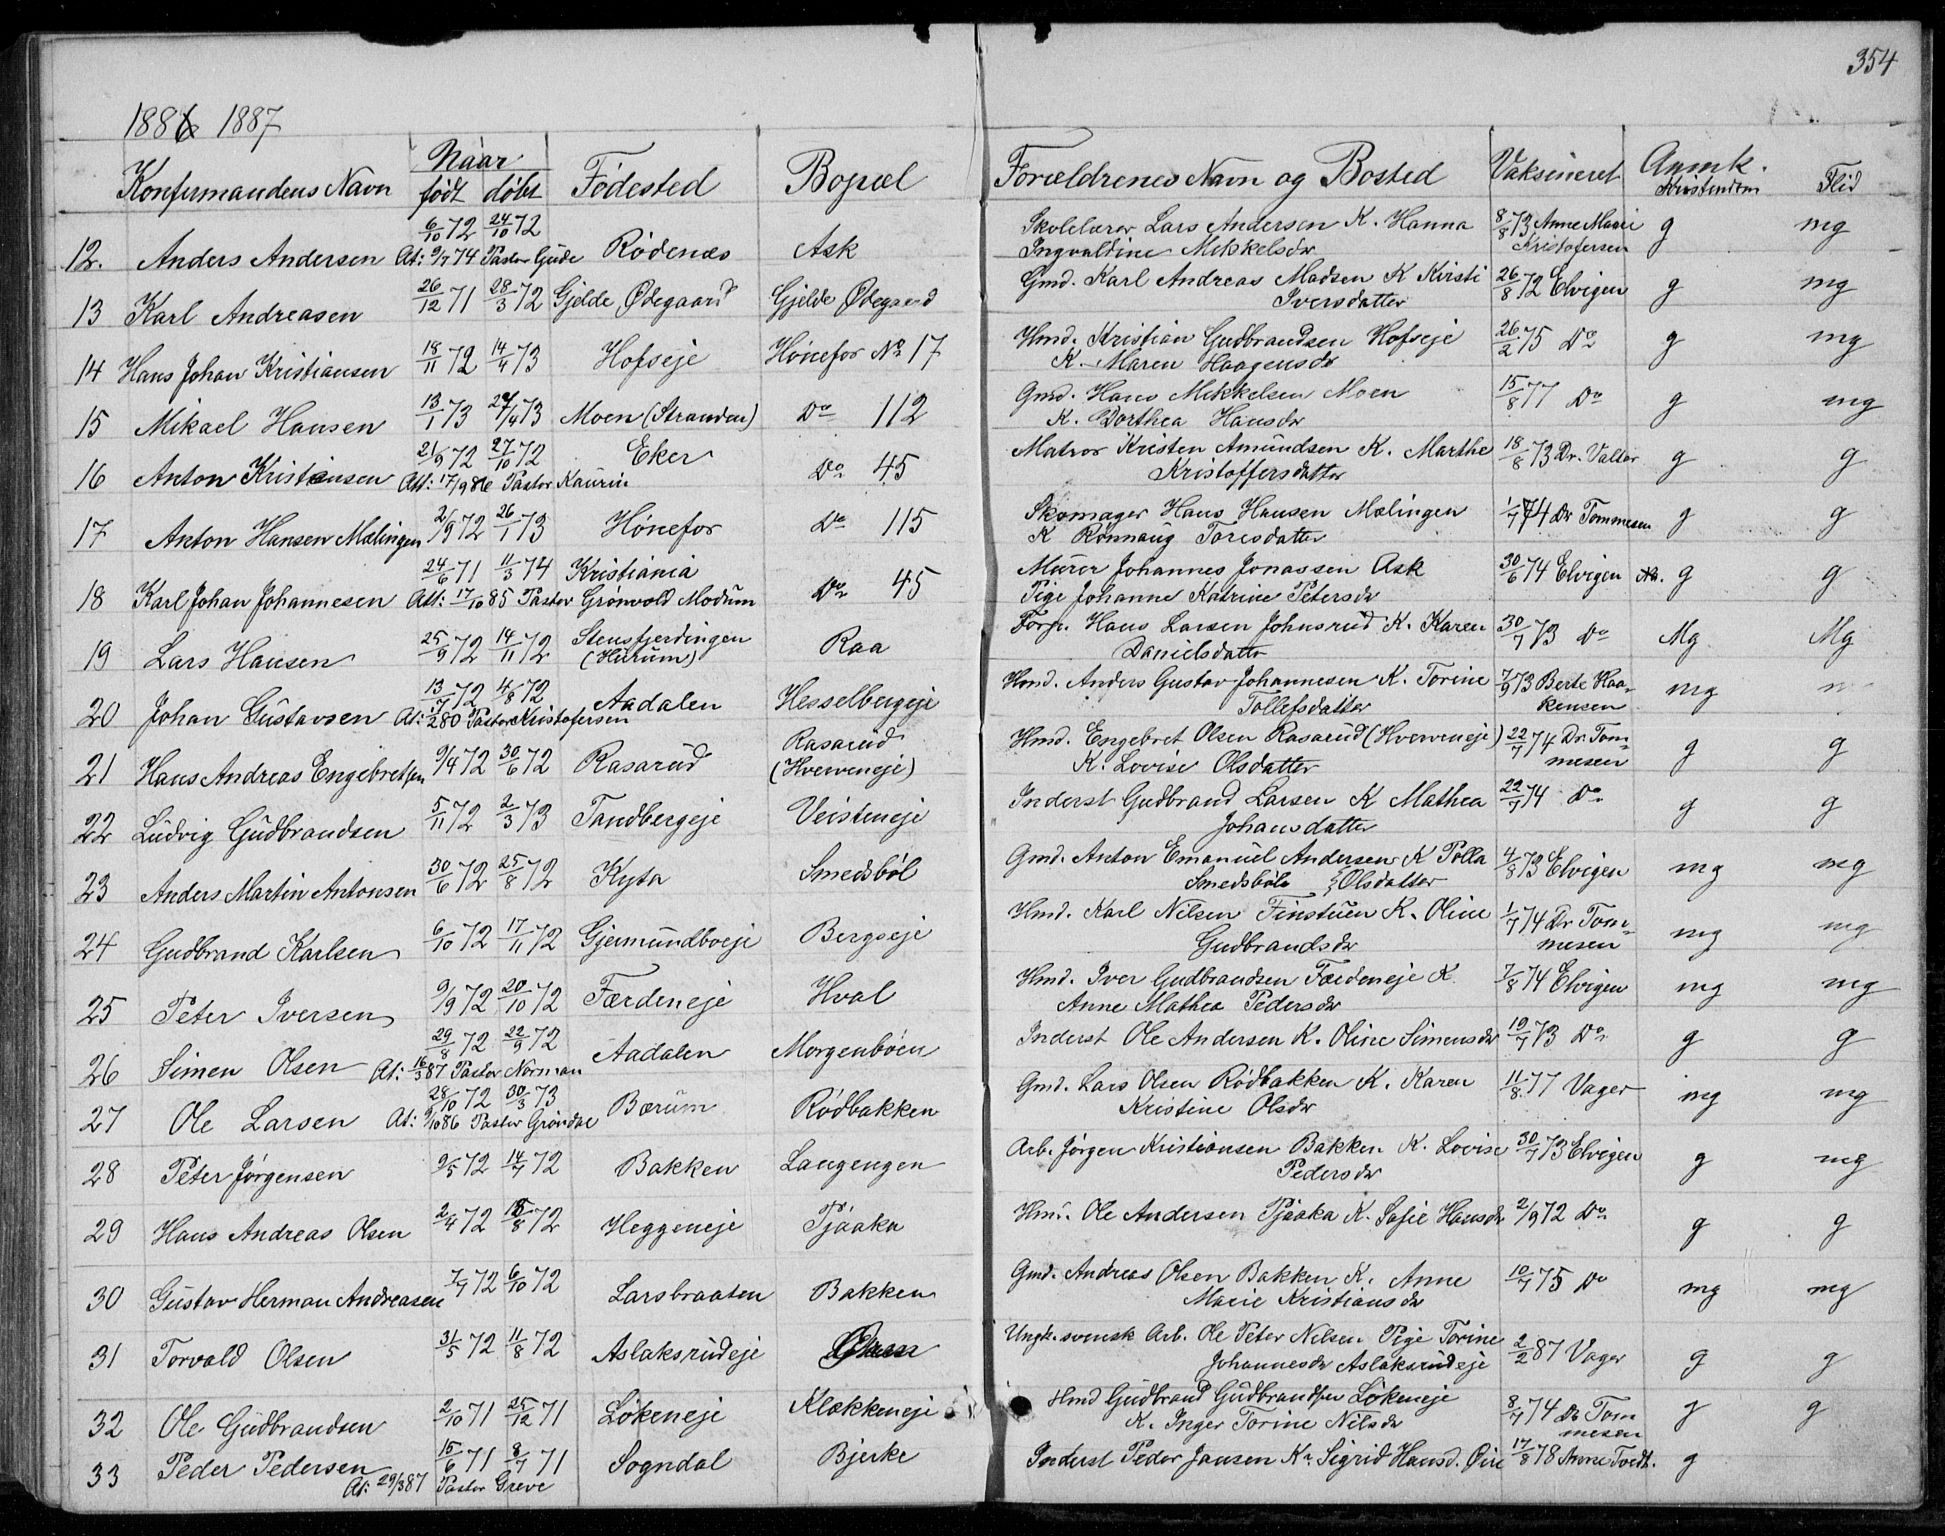 354
1886 1887
Konfirmandens Navn Naar født døbt Fødested Bopæl Forældrenes Navn og Bosted Vaksineret Anmk. Kristendom Flid
12. Anders Andersen 6/10 72 24/10 72 Rødenæs Ask Skolelærer Lars Andersen K. Hanna 8/8 73 Anne Marie g mg
At: 9/7 74 Pastor Gude Ingvaldine Mikkelsdr Kristofersen
13 Karl Andreasen 26/12 71 28/3 72 Gjelde Ødegaard Gjelde Ødegaard Gmd. Karl Andreas Madsen K Kirsti 26/8 72 Elvigen g mg
Iversdatter
14 Hans Johan Kristiansen 18/11 72 14/4 73 Hofseje Hønefos No 17 Hmd. Kristian Gudbrandsen Hofseje 26/2 75 Do g mg
K. Maren Haagensdr
15 Mikael Hansen 13/1 73 27/4 73 Moen (Stranden) Do 112 Gmd. Hans Mikkelsen Moen 15/8 77 Do g mg
K. Dorthea Hansdr
16 Anton Kristiansen 21/9 72 27/10 72 Eker Do 45 Matros Kristen Amundsen K. Marthe 18/8 73 Dr. Valter g g
Att: 17/9 86 Pastor Kaurin Kristoffersdatter
17 Anton Hansen Mælingen 2/9 72 26/1 73 Hønefos Do 115 Skomager Hans Hansen Mælingen 1/7 74 Dr Tommesen g g
K Rønnaug Toresdatter
18 Karl Johan Johannesen 24/6 71 11/3 74 Kristiania Do 45 Murer Johannes Jonassen Ask 30/6 74 Elvigen g g
Att: 17/10 85 Pastor Grønvold Modum Pige Johanne Katrine Petersdr
19 Lars Hansen 25/9 72 14/11 72 Stensfjerdingen Raa Forp. Hans Larsen Johnsrud K. Karen 30/7 73 Do Mg Mg
(Hurum) Danielsdatter
20 Johan Gustavsen 13/7 72 4/8 72 Aadalen Hesselbergeje Hmd. Anders Gustav Johannesen K. Torine 7/9 73 Berte Haa- mg
At: 280 Pastor Kristofersen Tollefsdatter kensen
21 Hans Andreas Engebretsen 9/4 72 30/6 72 Rasarud Rasarud Hmd. Engebret Olsen Rasarud (Hverveneje) 22/7 74 Dr Tom- g g
(Hverveneje) K. Lovise Olsdatter mesen
22 Ludvig Gudbrandsen 5/11 72 2/3 73 Tandbergeje Veisteneje Inderst Gudbrand Larsen K Mathea 22/7 74 Do g g
Johansdatter
23 Anders Martin Antonsen 30/6 72 25/8 72 Kyta Smedsbøl Gmd. Anton Emanuel Andersen K Polla 4/8 73 Elvigen mg mg
Smedsbøle Olsdatter
24 Gudbrand Karlsen 6/10 72 17/11 72 Gjermundboeje Bergseje Hmd. Karl Nilsen Finstuen K. Oline 1/7 74 Dr Tom- mg mg
Gudbrandsdr mesen
25 Peter Iversen 9/9 72 20/10 72 Færdeneje Hval Hmd. Iver Gudbrandsen Færdeneje K 7/8 74 Elvigen mg mg
Anne Mathea Pedersdr
26 Simen Olsen 29/8 72 22/9 72 Aadalen Morgenbøen Inderst Ole Andersen K. Oline Simensdr 19/7 73 Do g g
At: 16/3 87 Pastor Norman
27 Ole Larsen 28/10 72 30/3 73 Bærum Rødbakken Gmd. Lars Olsen Rødbakken K. Karen 11/8 77 Vager mg mg
At: 9/10 86 Pastor Grøndal Kristine Olsdr
28 Peter Jørgensen 9/5 72 14/7 72 Bakken Langengen Arb. Jørgen Kristiansen Bakken K. Lovise 30/7 73 Elvigen g mg
Pedersdr
29 Hans Andreas Olsen 2/4 72 /8 72 Heggeneje Pjaaka Hmd. Ole Andersen Pjaaka K. Sofie Hansdr 2/9 72 Do g g
30 Gustav Herman Andreasen 7/7 72 6/10 72 Larsbraaten Bakken Gmd. Andreas Olsen Bakken K. Anne 10/7 75 Do mg mg
Marie Kristiansdr
31 Torvald Olsen 31/5 72 11/8 72 Aslaksrudeje Ungk. svensk Arb. Ole Peter Nilsen Pige Torine 2/2 87 Vager g g
Johannesdr Aslaksrudeje
32 Ole Gudbrandsen 2/10 71 25/12 71 Løkeneje Klækkeneje Hmd Gudbrand Gudbrandsen Løkeneje 8/7 74 Dr Tom- g g
K. Inger Torine Nilsdr mesen
33 Peder Pedersen 15/6 71 8/7 71 Sogndal Bjerke Inderst Peder Jansen K. Sigrid Hansd. Øie 17/8 78 Anne Tvedt. g
At: 29/3 87 Pastor Greve